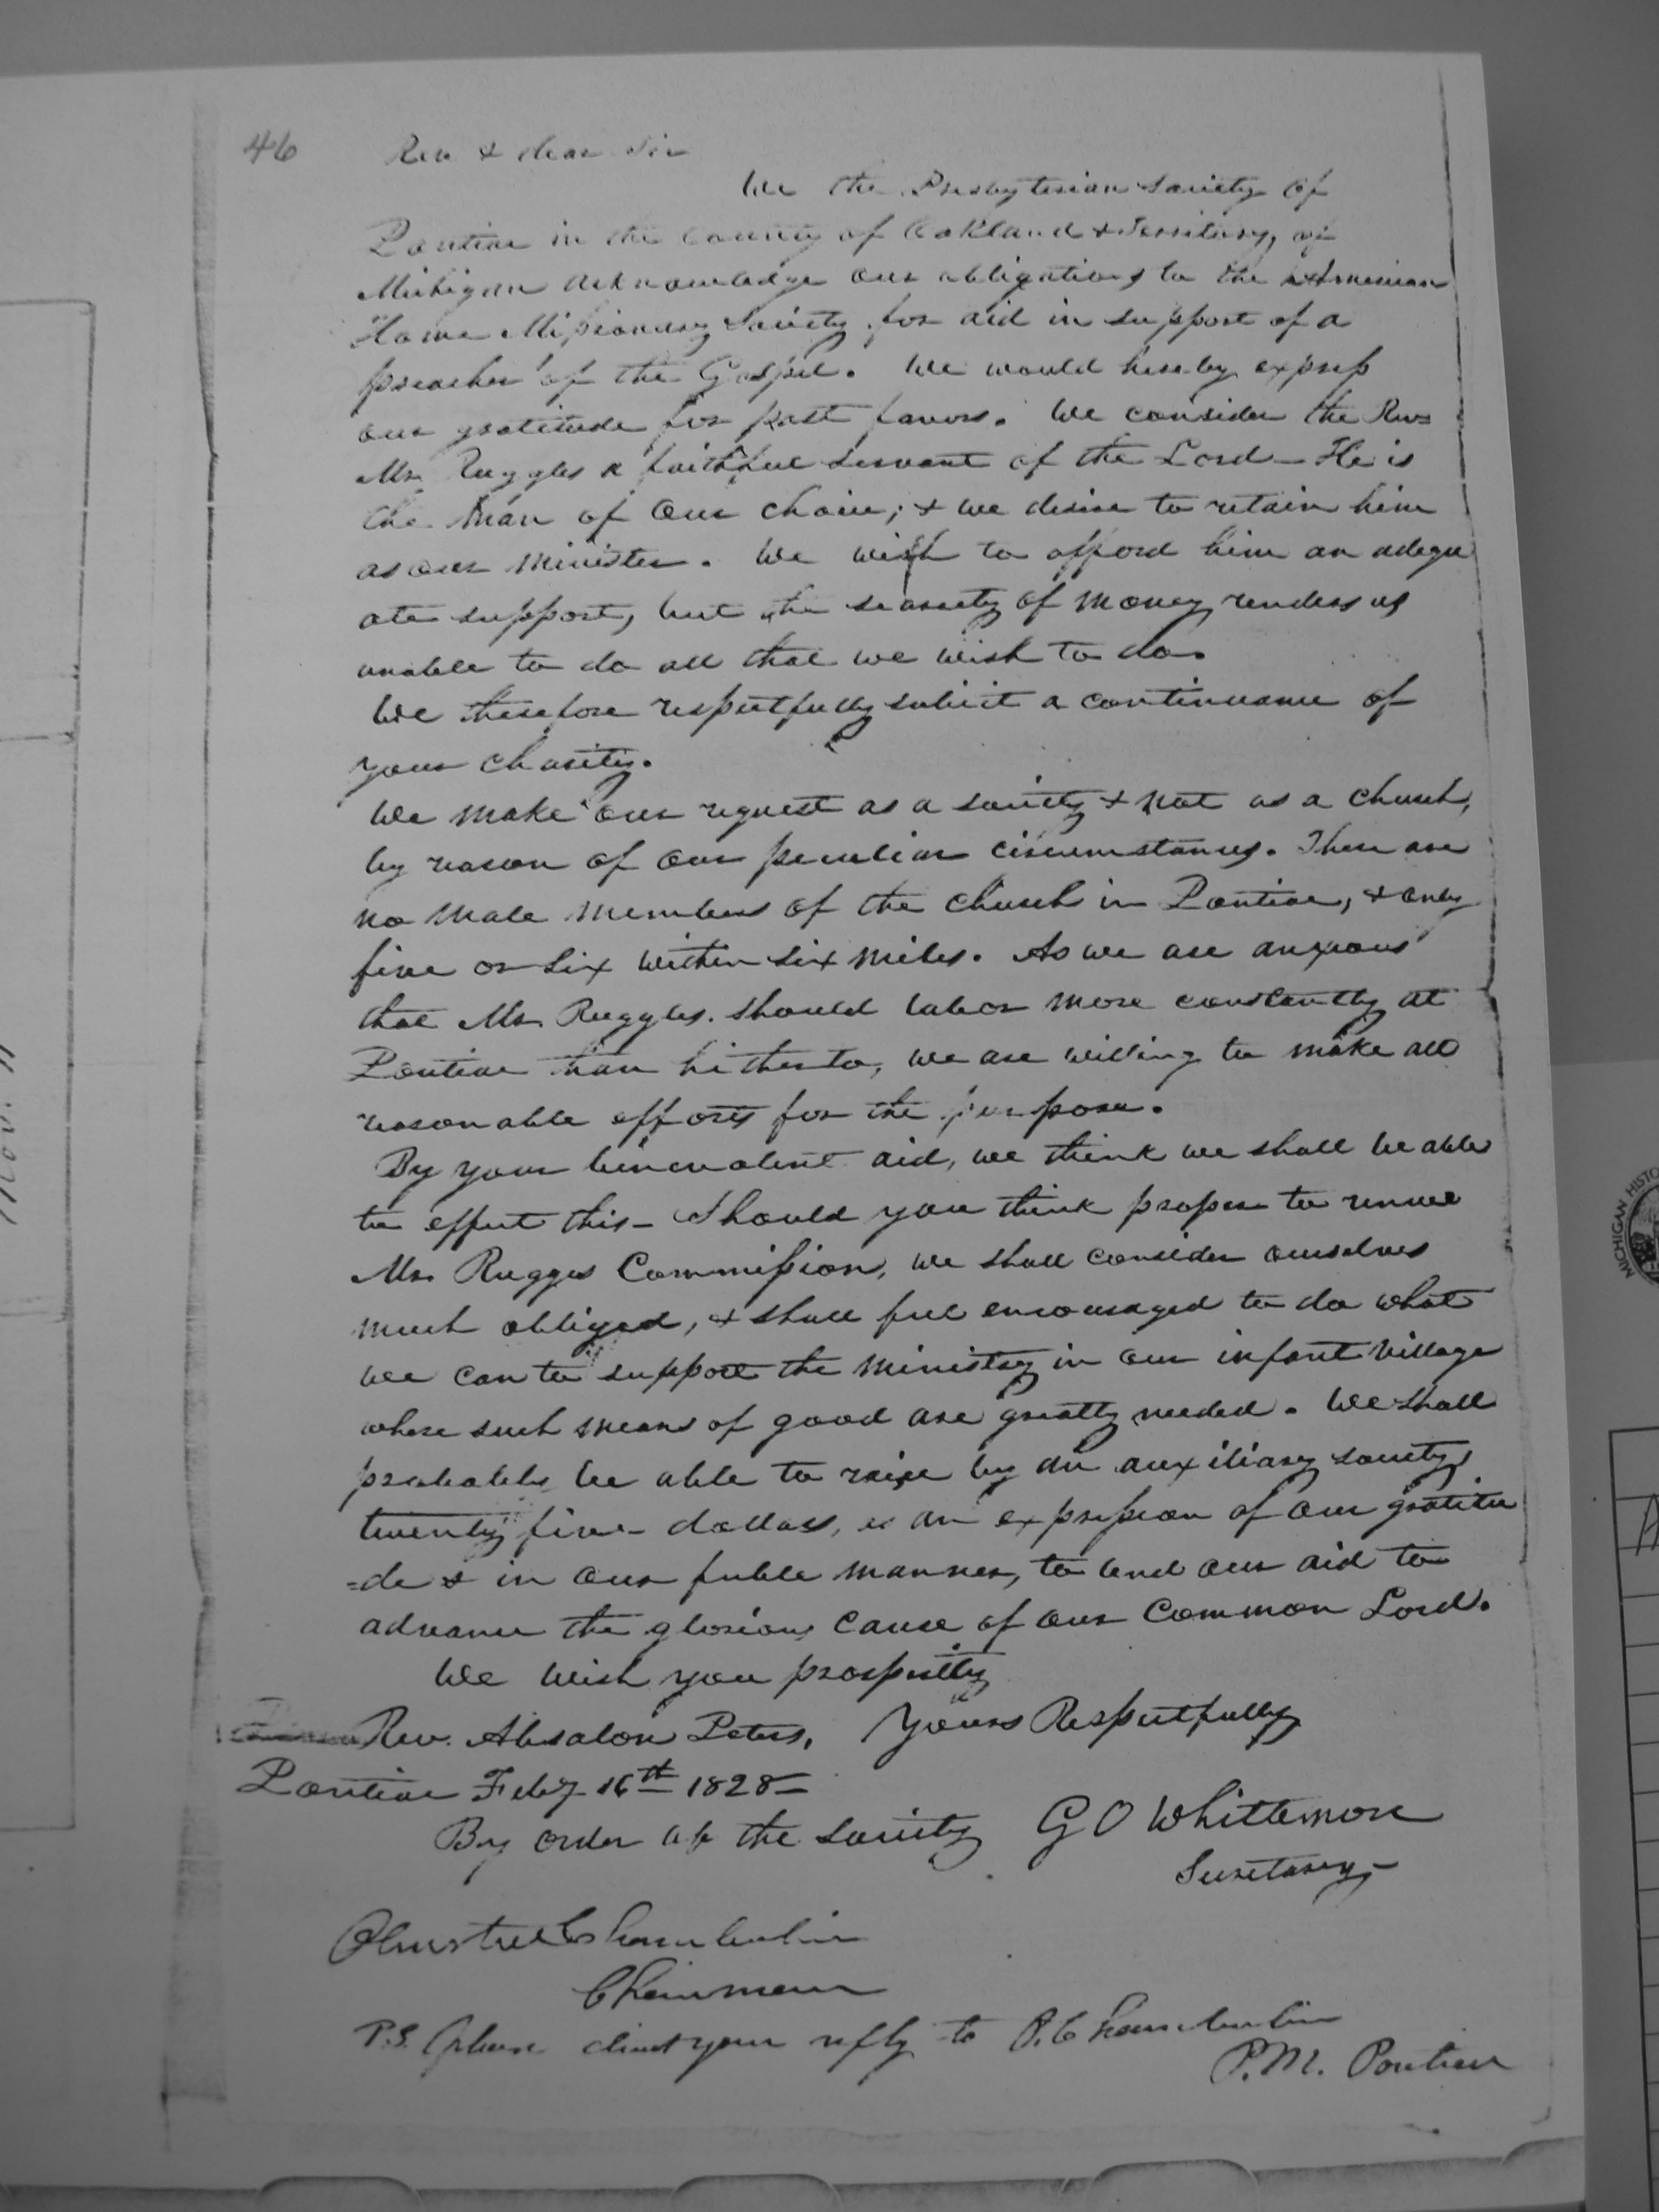 46
Rev & dear Sir
We the Presbyterian Society of
Pontiac in the County of Oakland & Territory of
Michigan acknowledge our obligations to the American
Home Missionary Society for aid in support of a
preacher of the Gospel. We would hereby express
our gratitude for past favors. We consider the Rev
Mr. Ruggles a faithful servant of the Lord - He is
the man of our choice; & we desire to retain him
as our minister. We wish to afford him an adequ
ate support, but the scarcity of money renders us
unable to do all that we wish to do.
We therefore respectfully solicit a continuance of
your charity.
We make our request as a society & not as a church,
by reason of our peculiar circumstances. There are
no male members of the church in Pontiac, & only
five or six within six miles. As we are anxious
that Mr. Ruggles should labor more constantly at
Pontiac than hitherto, we are willing to make all
reasonable efforts for the purpose.
By your benevolent aid, we think we shall be able
to effect this - Should you think proper to renew
Mr. Rugges Commission, we shall consider ourselves
much obliged, & shall feel encouraged to do what
we can to support the ministry in our infant village
where such means of good are greatly needed. We shall
probably be able to raise by an auxiliary society
twenty five dollars, as an expression of our gratitu
=de & in our feeble manner, to lend our aid to
advance the glorious cause of our Common Lord.
We wish you prosperity
Rev. Absalom Peters, Yours Respectfully
Pontiac Feby 16th 1828
By order of the society G O Whittemore
Secretary
Olmsted Chamberlin
Chairman
P.S. please direct your reply to O. Chamberlin
P.M. Pontiac
Nov. 11
MICHIGAN HISTO